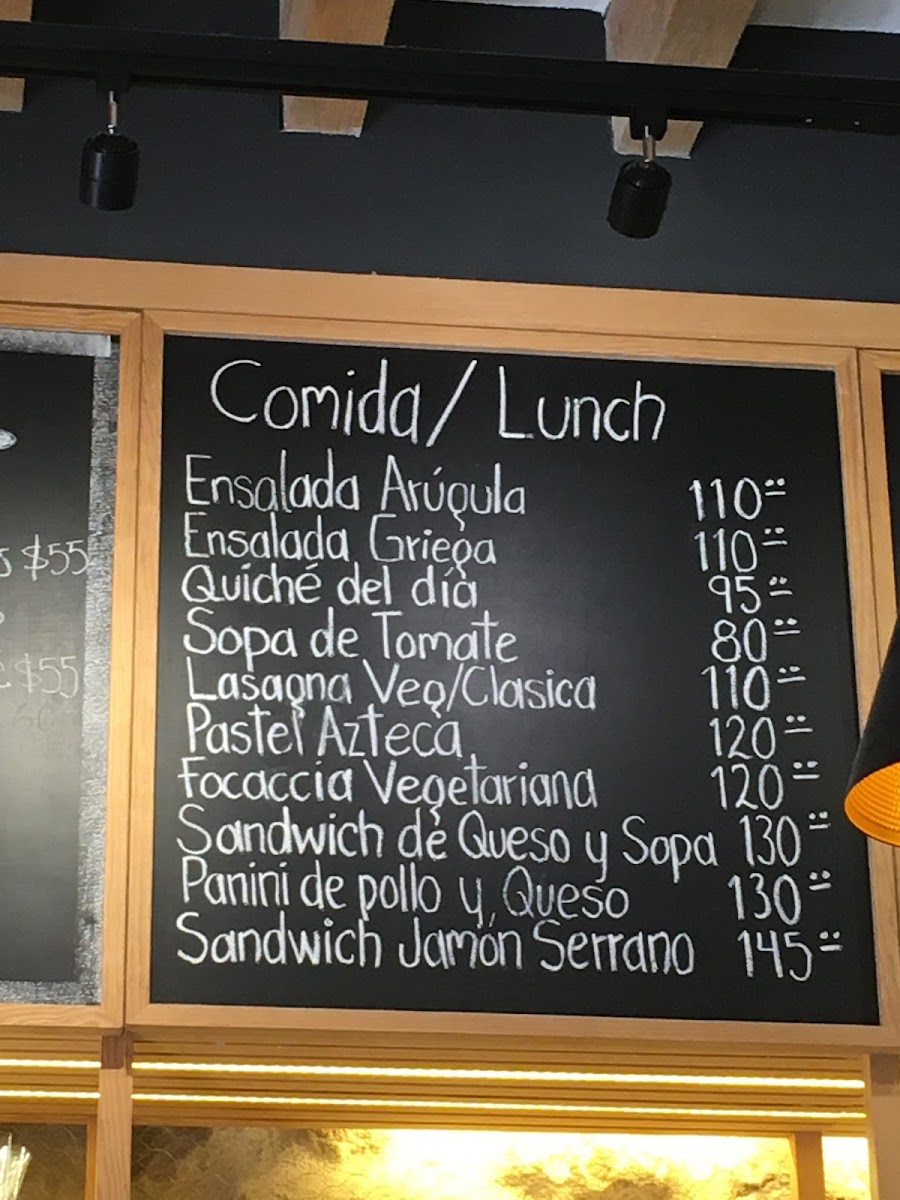 $55
$55
Comida/ Lunch
Ensalada Arúgula 110.=
Ensalada Griega 110.=
Quiché del día 95.=
Sopa de Tomate 80.=
Lasagna Veg/Clasica 110.=
Pastel Azteca 120.=
Focaccia Vegetariana 120.=
Sandwich de Queso y Sopa 130.=
Panini de pollo y Queso 130.=
Sandwich Jamón Serrano 145.=